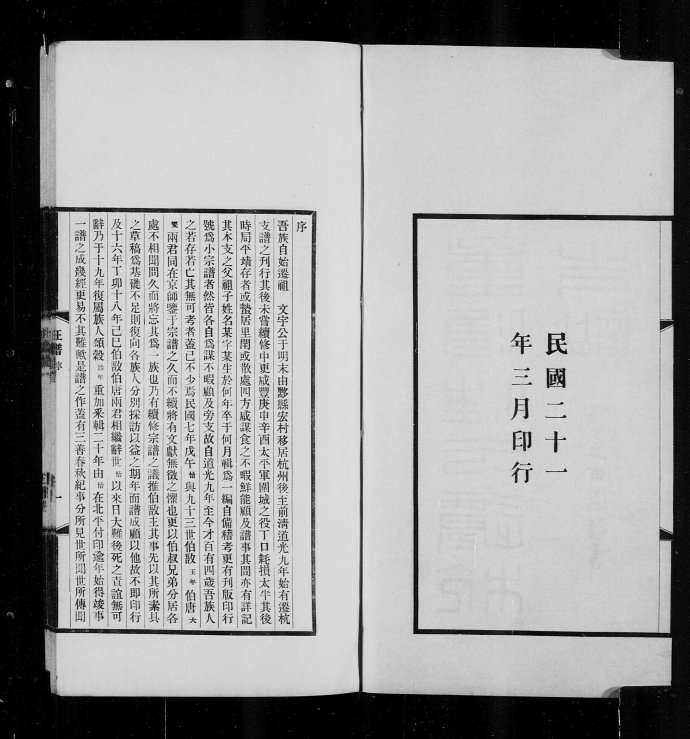 民國二十一
年三月印行
序
吾族自始遷祖　文宇公于明末由黟縣宏村移居杭州後至前淸道光九年始有遷杭
支譜之刊行其後未嘗續修中更咸豐庚申辛酉太平軍圍城之役丁口耗損太半其後
時局平靖存者或蟄居里閈或散處四方咸謀食之不暇鮮能顧及譜事其間亦有詳記
其本支之父祖子姓名某字某生於何年卒于何月輯爲一編自備稽考更有刊版印行
號爲小宗譜者然皆各自爲謀不暇顧及旁支故自道光九年至今才百有四歲吾族人
之若存若亡其無可考者蓋已不少焉民國七年戊午怡與九十三世伯敔玉年伯唐大
燮兩君同在京師鑒于宗譜之久而不續將有文獻無徵之懼也更以伯叔兄弟分居各
處不相聞問久而將忘其爲一族也乃有續修宗譜之議推伯敔主其事先以其所素具
之草稿爲基礎不足則復向各族人分別採訪以益之期年而譜成顧以他故不即印行
及十六年丁卯十八年己巳伯敔伯唐兩君相繼辭世怡以來日大難後死之責誼無可
辭乃于十九年復屬族人頌穀詒年重加釆輯二十年由怡在北平付印逾年始得竣事
一譜之成幾經更易不其難歟是譜之作蓋有三善春秋紀事分所見世所聞世所傳聞
汪譜　序
一